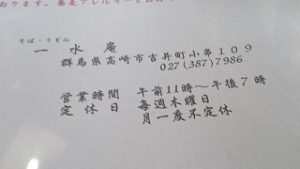 おります。蕎麦アレルギーをお
そば・うどん
一水庵
群馬県高崎市吉井町小串109
027(387)7986
営業時間　午前11時～午後7時
定休日　毎週木曜日
月一度不定休